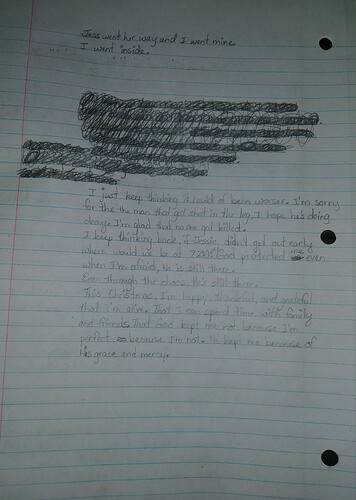 Jess went her way and I went mine.
I went inside.
I just keep thinking it could of been worser. I'm sorry
for the the man that got shot in the leg, I hope he's doing
okaye I'm glad that no one got killed.
I keep thinking back, if Jessie didn't get out early
where would we be at 7:20? God protected me even
when I'm afraid, He is still there.
Even through the chaos, He's still there.
This Christmas, I'm happy, thankful, and grateful
that I'm alive. That I can spend time with family
and friends. That God kept me not because I'm
perfect because I'm not. He kept me because of
his grace and mercy.